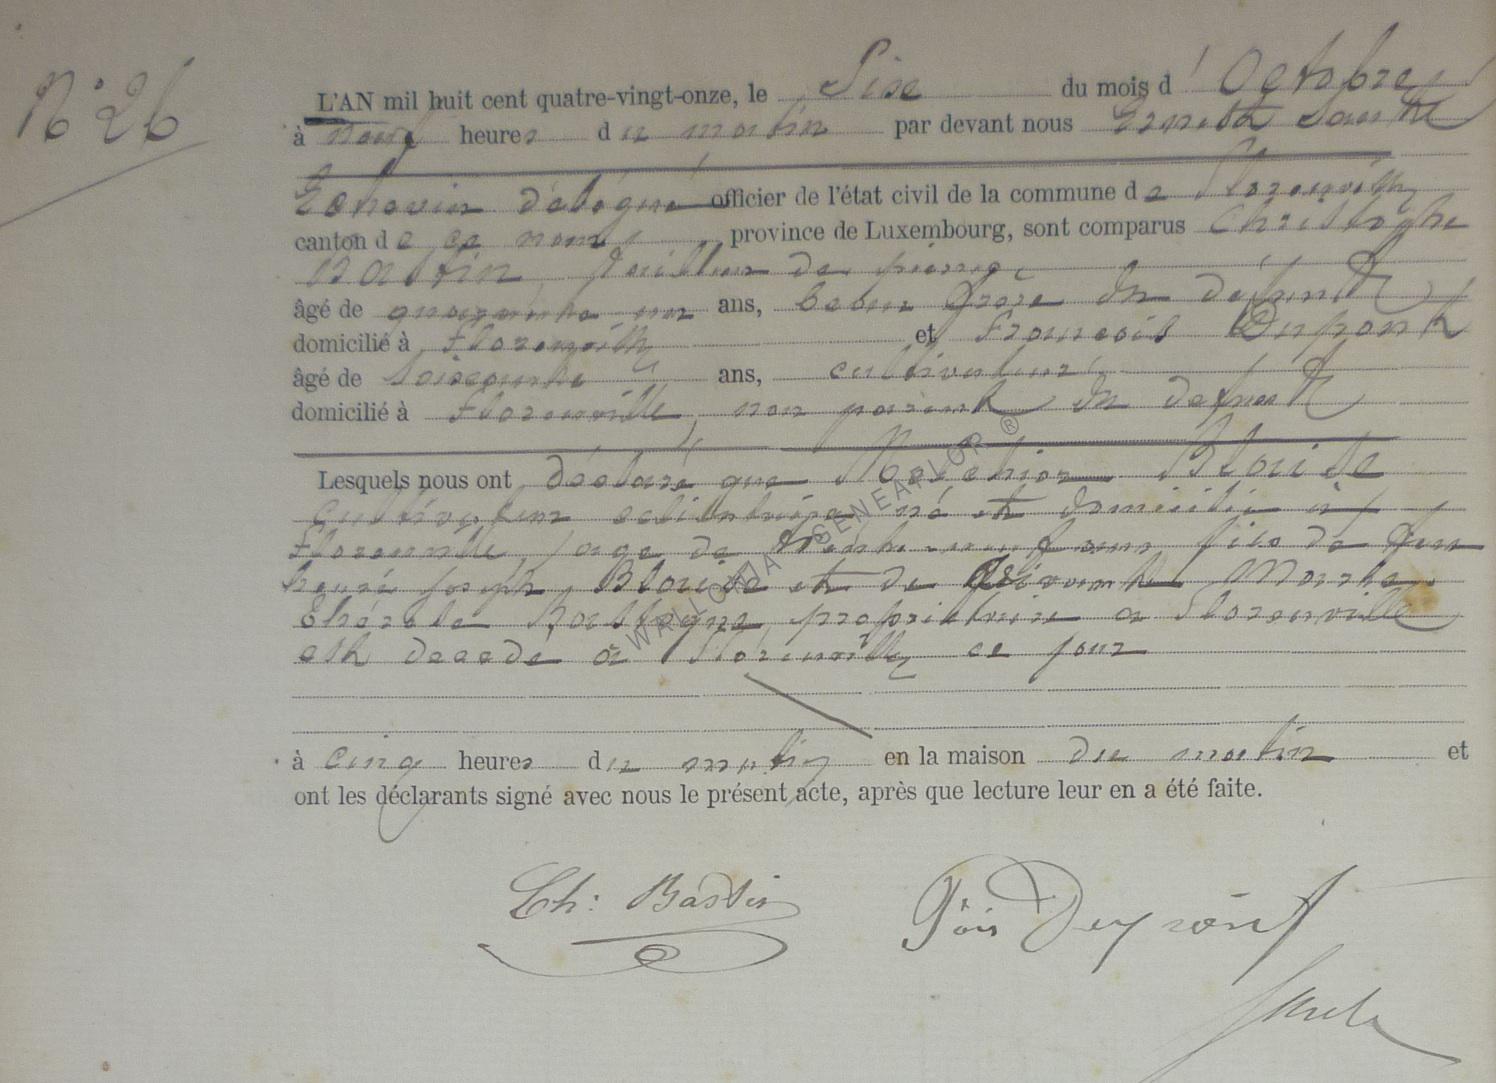 N° 26
L'AN mil huit cent quatre-vingt-onze, le Sise du mois d'Octobre
à neuf heures du matin par devant nous Ernest
Echevin délégué officier de l'état civil de la commune de Florenville
canton de ce nom, province de Luxembourg, sont comparus Christophe
Bastin, tailleur de pierre,
âgé de quarante un ans, beau frère du defunt
domicilié à Florenville et François Dupont
âgé de soixante ans, cultivateur
domicilié à Florenville, non parent du defunt
Lesquels nous ont déclaré que Blaise
Cultivateur célibataire né et domicilié à
Florenville, age de trente-neuf ans fils de feu
henri joseph Blaise et de Marie
thérèse propriétaire a Florenville
est decede à Florenville ce jour
à cinq heures du matin en la maison du matin et
ont les déclarants signé avec nous le présent acte, après que lecture leur en a été faite.
Ch: Bastin Fçois Dupont
WALLONIA GENEARLOR ®